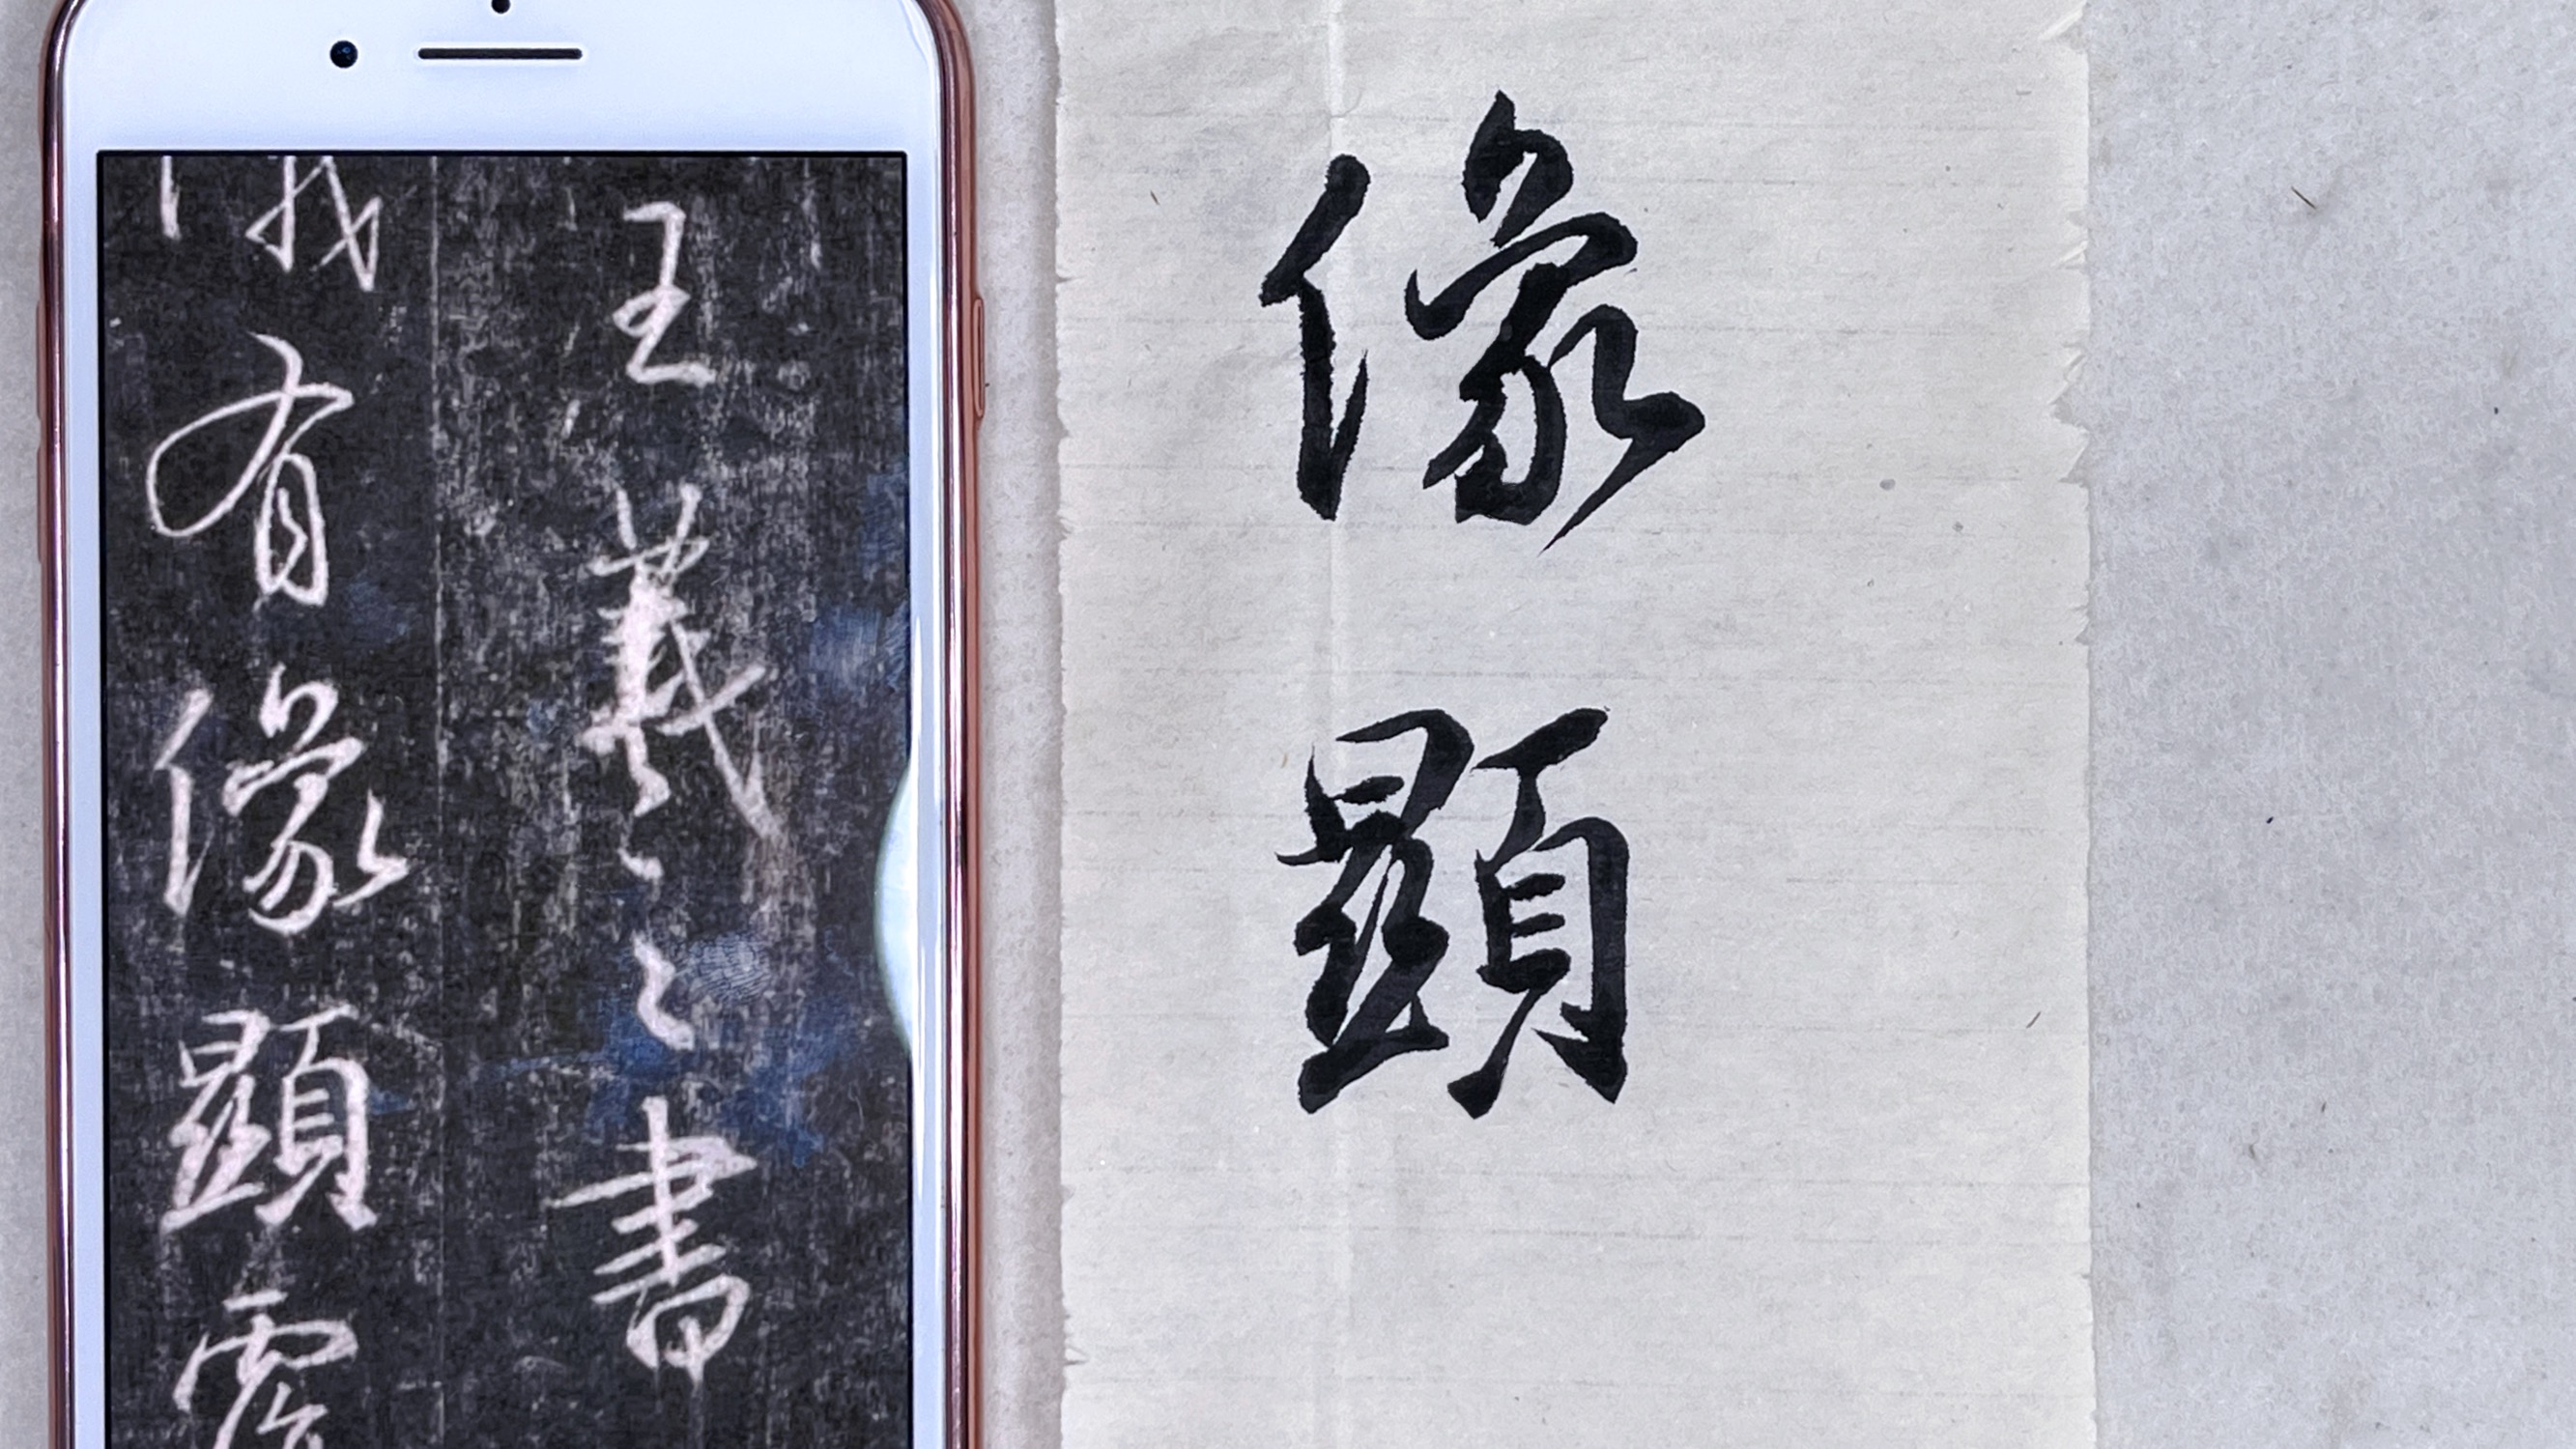 王羲之書
儀有像顯覆
像顯